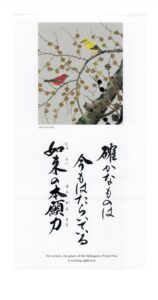 確かなものは
今もはたらいている
如来の本願力
にょ らい
ほん がん りき
For certain, the power of the Tathagata's Primal Vow
is working right now.